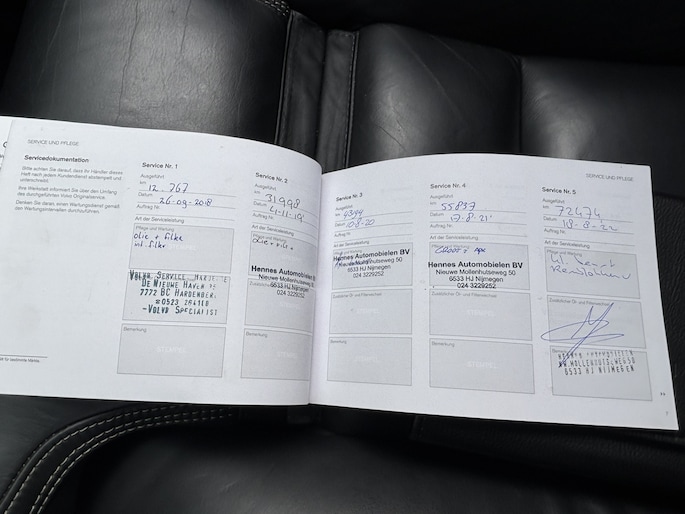 SERVICE UND PFLEGE
Servicedokumentation
Bitte achten Sie darauf, dass Ihr Händler dieses
Heft nach jedem Kundendienst abstempelt und
unterschreibt.
Ihre Werkstatt informiert Sie über den Umfang
des durchgeführten Volvo Originalservice.
Denken Sie daran, einen Wartungsdienst gemäß
den Wartungsintervallen durchzuführen.
Service Nr. 1
Ausgeführt
km
12.767
Datum
26-09-2018
Auftrag Nr.
Art der Serviceleistung
Pflege und Wartung
olie + filter
VOLVO SERVICE
DE NIEUWE HAVEN
7772 BC HARDENBERG
-VOLVO SPECIALIST
Bemerkung
STEMPEL
Service Nr. 2
Ausgeführt
km
31998
Datum
4-11-19
Auftrag Nr.
Art der Serviceleistung
Pflege und Wartung
Hennes Automobielen BV
Nieuwe Mollenhutseweg 50
6533 HJ Nijmegen
024 3229252
Bemerkung
STEMPEL
Service Nr. 3
Ausgeführt
km
Datum
Auftrag Nr.
Art der Serviceleistung
Hennes Automobielen BV
Nieuwe Mollenhutseweg 50
6533 HJ Nijmegen
024 3229252
Zusätzlicher Öl- und Filterwechsel
Bemerkung
STEMPEL
Service Nr. 4
Ausgeführt
km
55837
Datum
17.8.21
Auftrag Nr.
Art der Serviceleistung
Pflege und Wartung
Hennes Automobielen BV
Nieuwe Mollenhutseweg 50
6533 HJ Nijmegen
024 3229252
Zusätzlicher Öl- und Filterwechsel
Bemerkung
STEMPEL
SERVICE UND PFLEGE
Service Nr. 5
Ausgeführt
km
72474
Datum
18-8-22
Auftrag Nr.
Art der Serviceleistung
Pflege und Wartung
Zusätzlicher Öl- und Filterwechsel
Bemerkung
6533 HJ NIJMEGEN